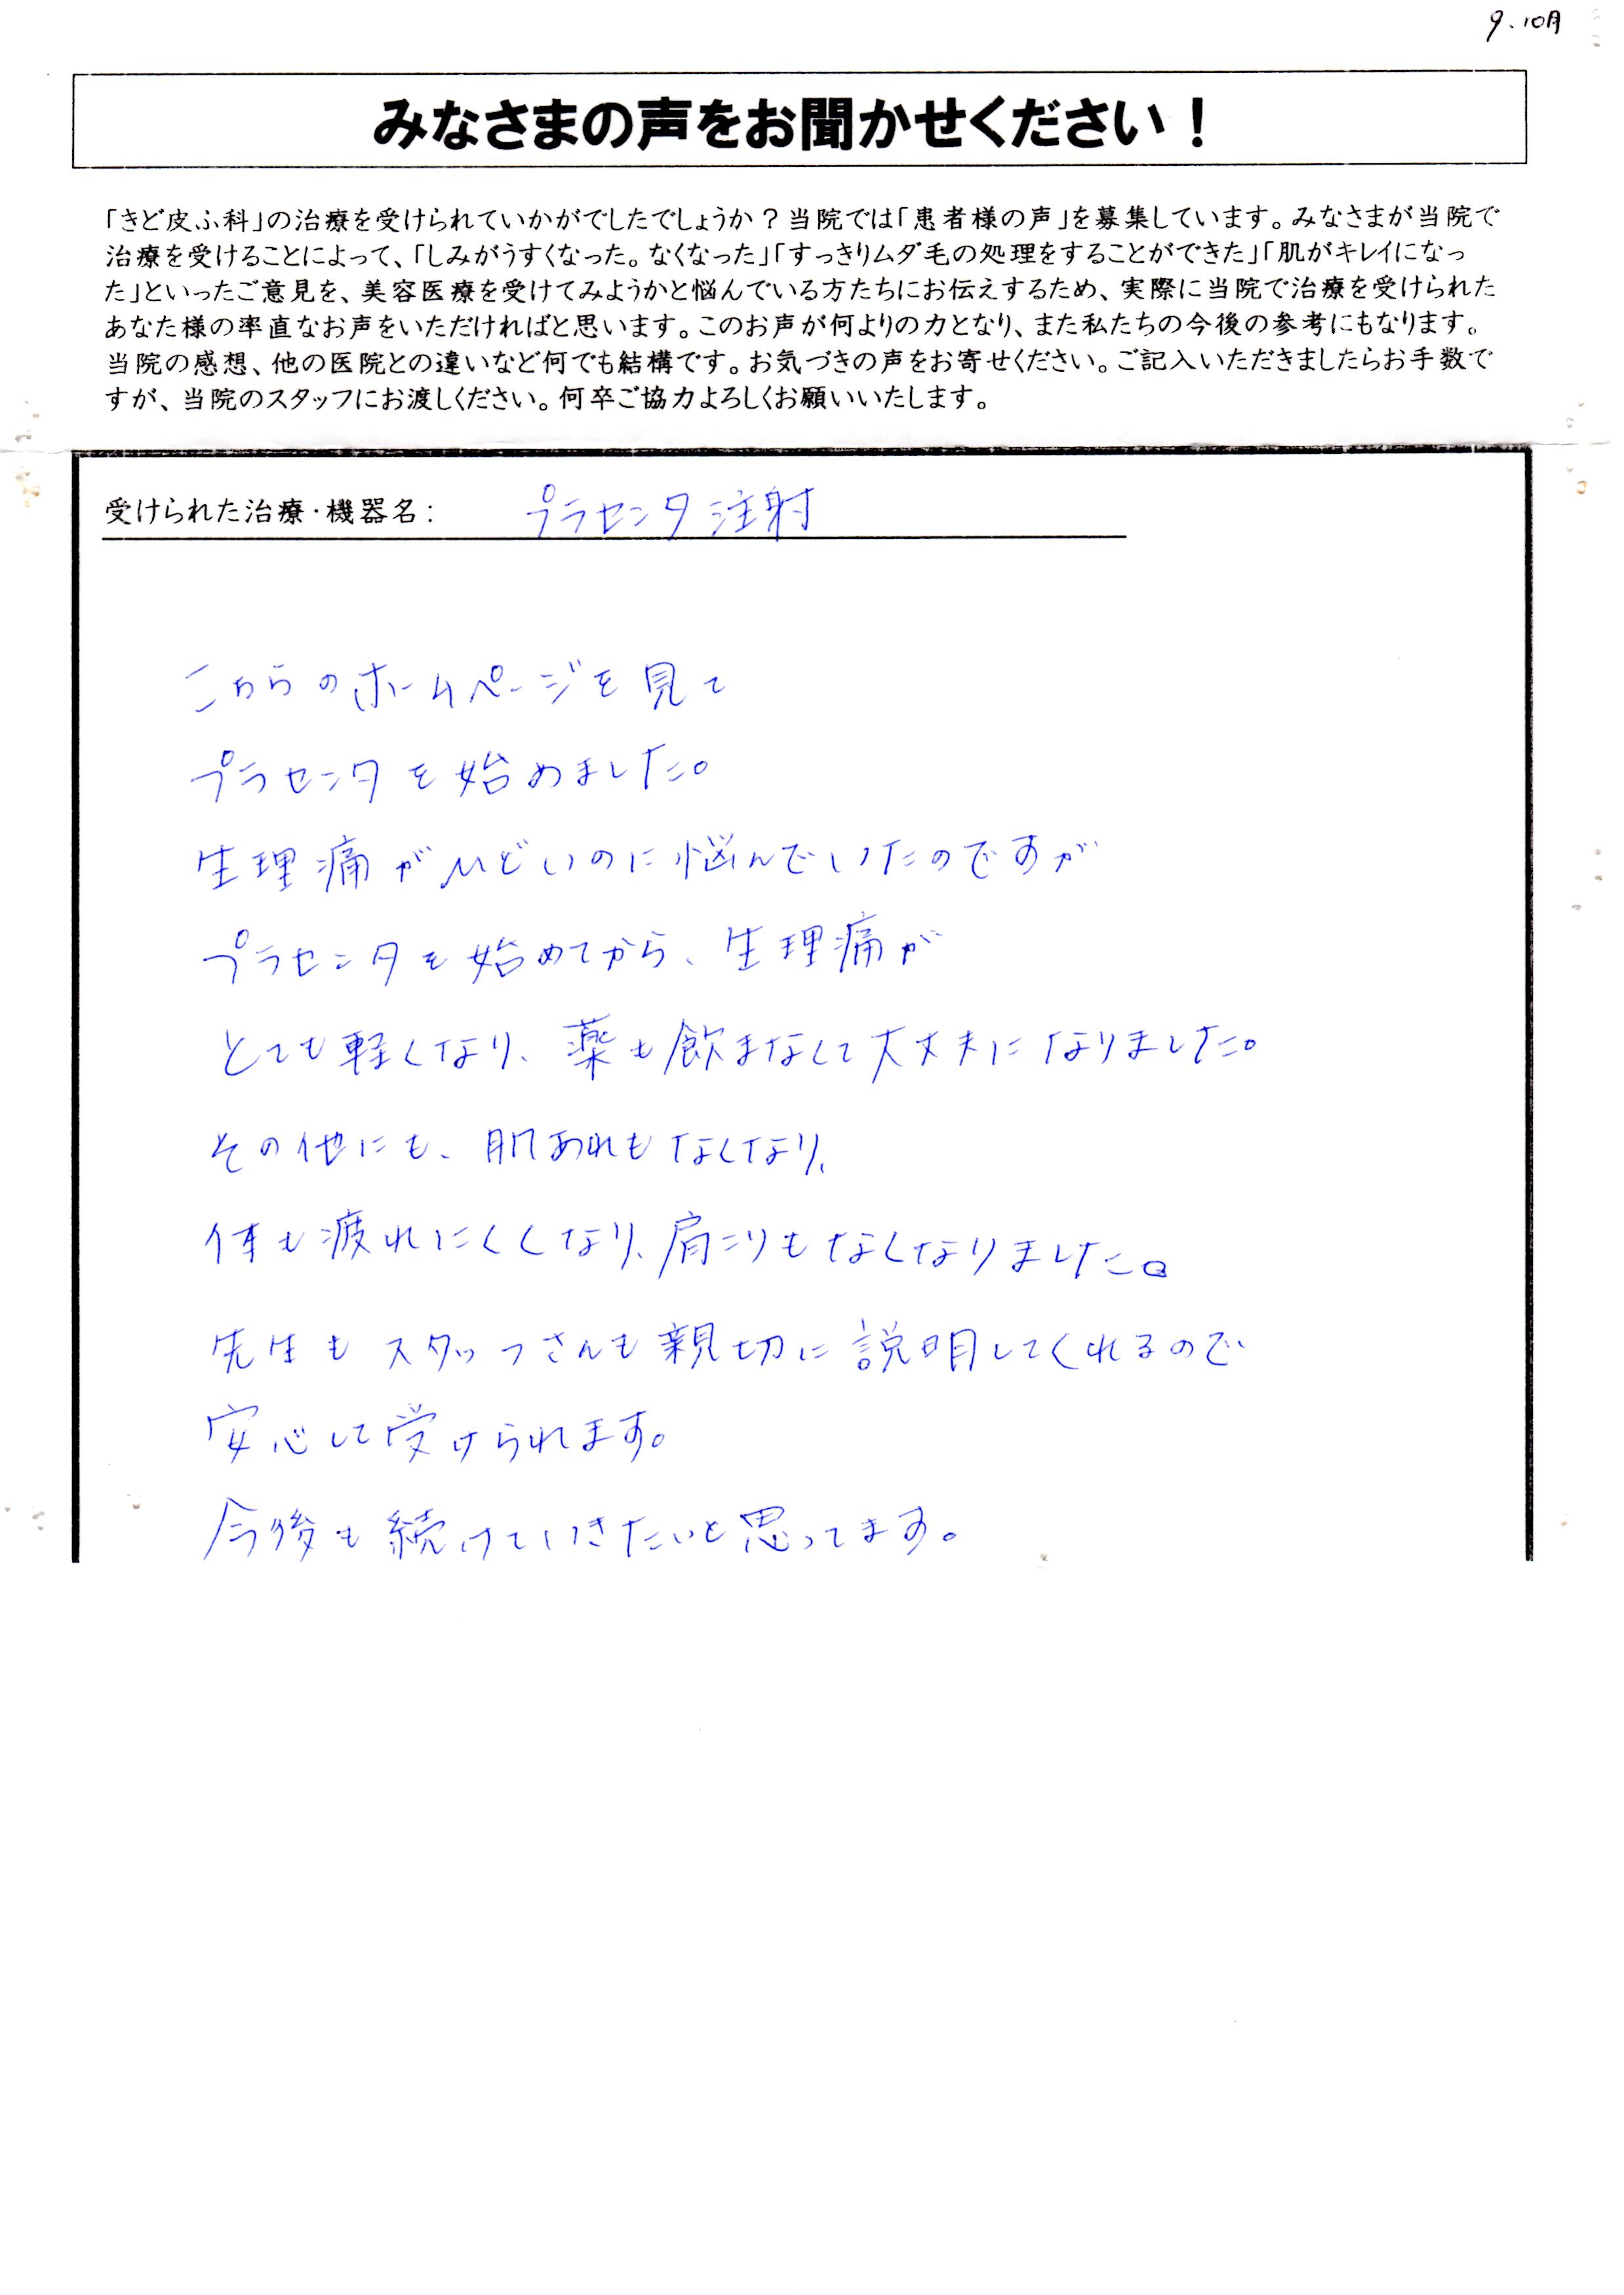 9.10月
みなさまの声をお聞かせください！
「きど皮ふ科」の治療を受けられていかがでしたでしょうか？当院では「患者様の声」を募集しています。みなさまが当院で
治療を受けることによって、「しみがうすくなった。なくなった」「すっきりムダ毛の処理をすることができた」「肌がキレイになっ
た」といったご意見を、美容医療を受けてみようかと悩んでいる方たちにお伝えするため、実際に当院で治療を受けられた
あなた様の率直なお声をいただければと思います。このお声が何よりの力となり、また私たちの今後の参考にもなります。
当院の感想、他の医院との違いなど何でも結構です。お気づきの声をお寄せください。ご記入いただきましたらお手数で
すが、当院のスタッフにお渡しください。何卒ご協力よろしくお願いいたします。
受けられた治療・機器名： プラセンタ注射
こちらのホームページを見て
プラセンタを始めました。
生理痛がひどいのに悩んでいたのですが
プラセンタを始めてから、生理痛が
とても軽くなり、薬も飲まなくて大丈夫になりました。
その他にも、肌あれもなくなり、
体も疲れにくくなり、肩こりもなくなりました。
先生もスタッフさんも親切に説明してくれるので
安心して受けられます。
今後も続けていきたいと思ってます。